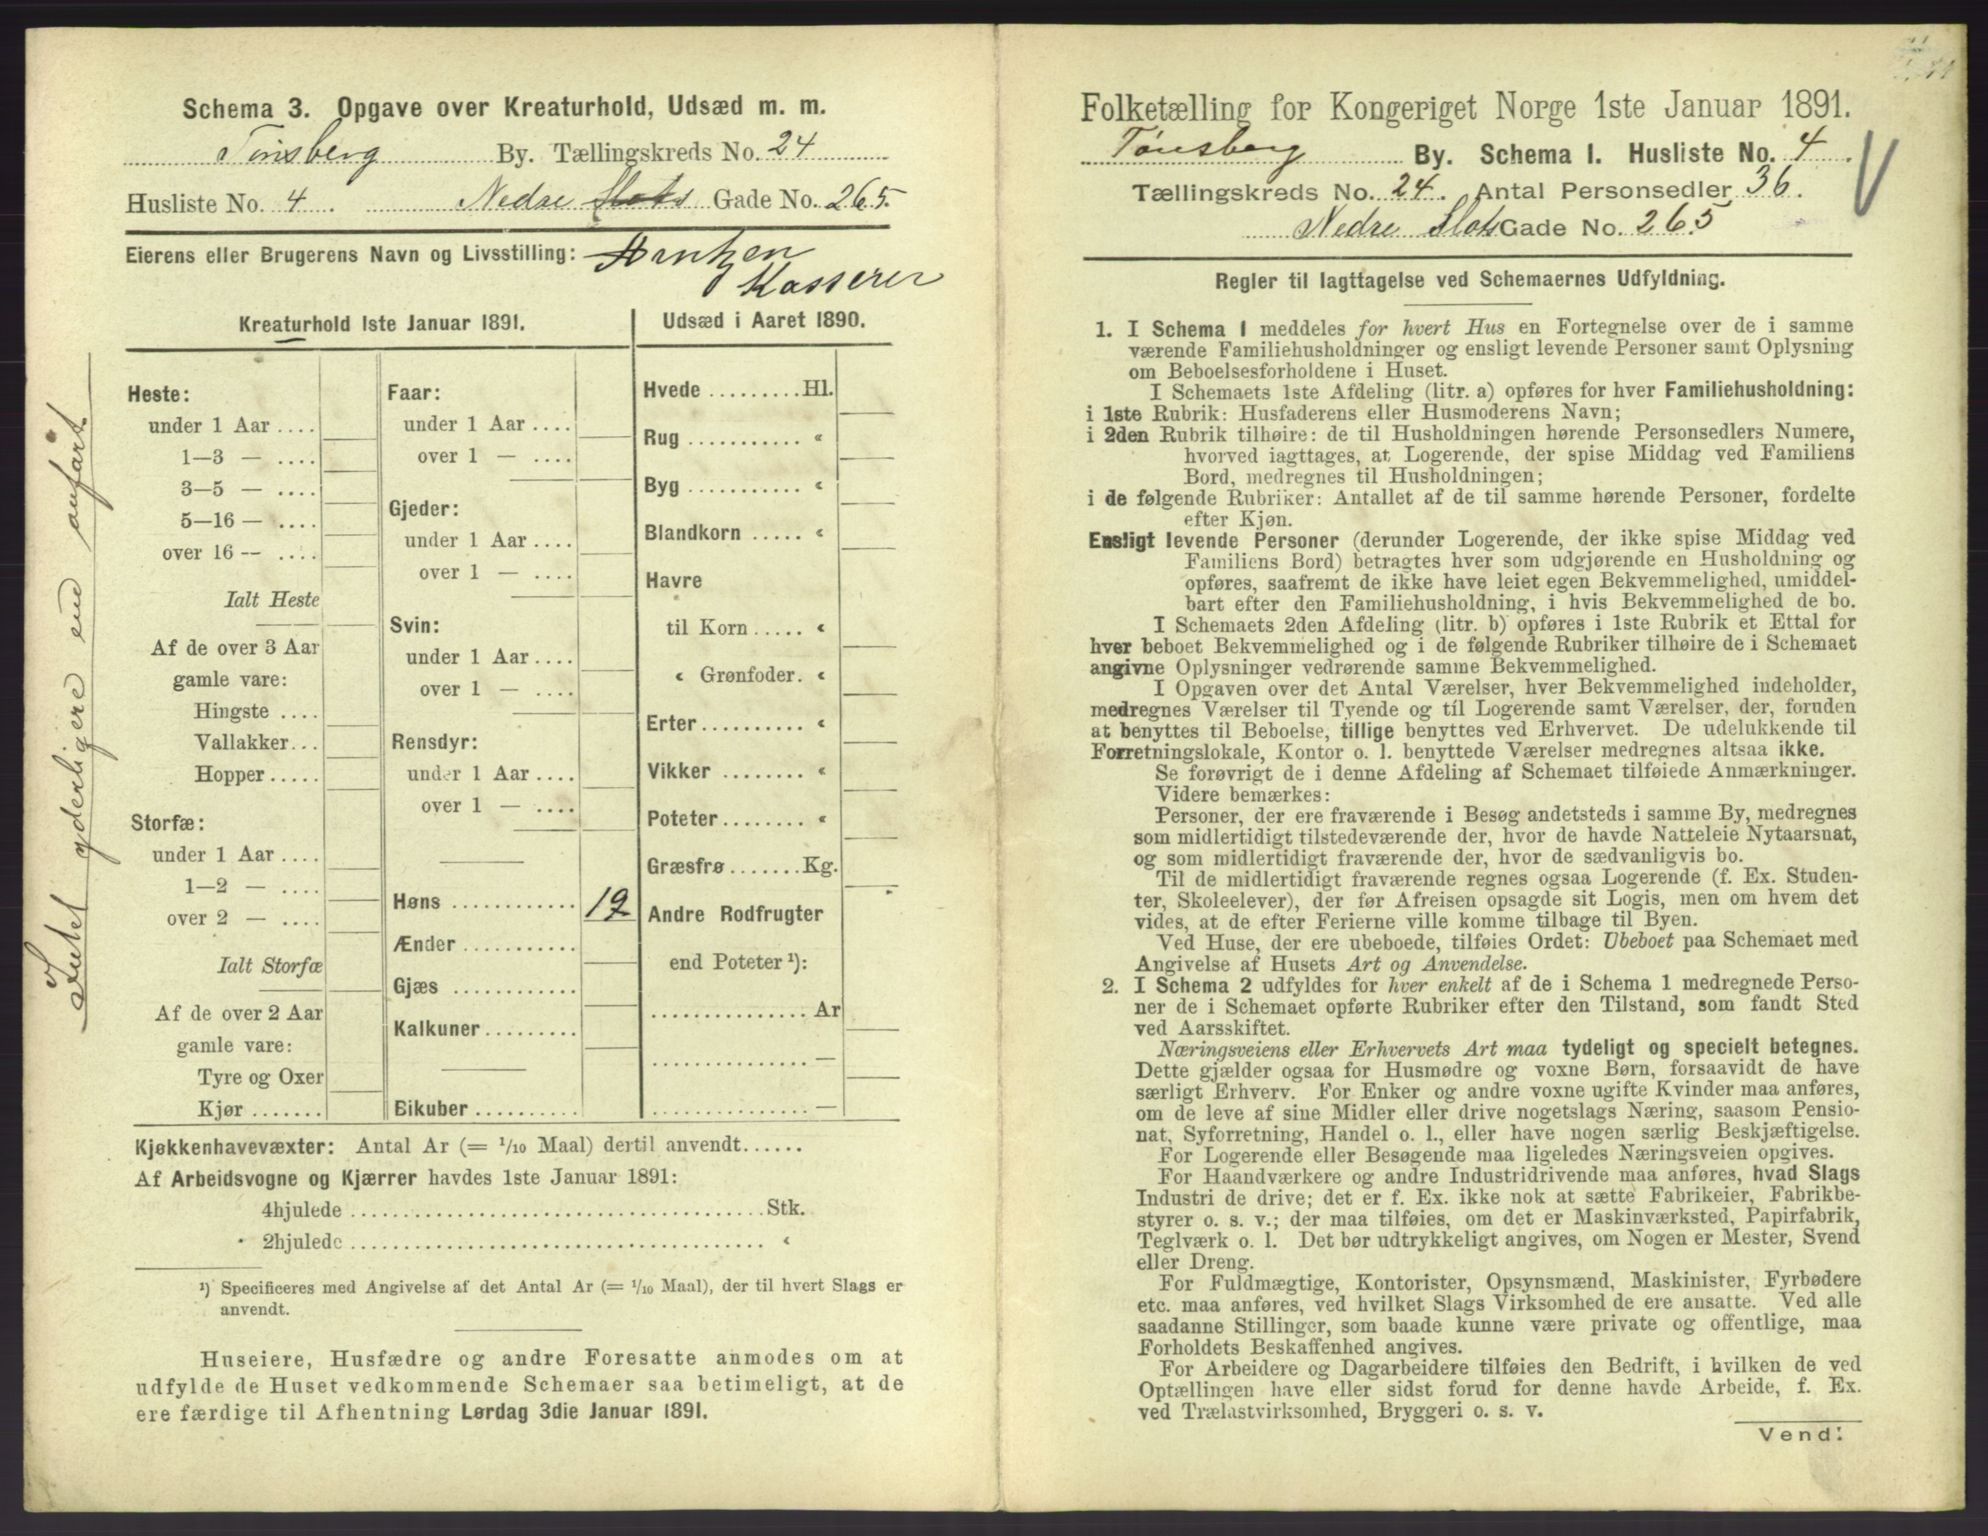 Schema 3. Opgave over Kreaturhold, Udsæd m. m.
Tønsberg By. Tællingskreds No. 24
Husliste No. 4. Nedre Slots Gade No. 265.
Eierens eller Brugerens Navn og Livsstilling: Arntzen
Kasserer
Kreaturhold 1ste Januar 1891.
Heste:
under 1 Aar ....
1—3 — ....
3—5 — ....
5—16 — ....
over 16 — ....
Ialt Heste
Af de over 3 Aar
gamle vare:
Hingste ....
Vallakker...
Hopper .....
Storfæ:
under 1 Aar ....
1—2 — ....
over 2 — ....
Ialt Storfæ
Af de over 2 Aar
gamle vare:
Tyre og Oxer
Kjør .......
Faar:
under 1 Aar ....
over 1 — ....
Gjeder:
under 1 Aar ....
over 1 — ....
Svin:
under 1 Aar ....
over 1 — ....
Rensdyr:
under 1 Aar ....
over 1 — ....
Høns ............ 12
Ænder ...........
Gjæs ............
Kalkuner.........
Bikuber ..........
Udsæd i Aaret 1890.
Hvede .........Hl.
Rug ........... «
Byg ........... «
Blandkorn ..... «
Havre
til Korn ..... «
« Grønfoder. «
Erter.......... «
Vikker ........ «
Poteter........ «
Græsfrø.......Kg.
Andre Rodfrugter
end Poteter ¹):
............... Ar
............... —
............... —
Intet yderligere end anført
Kjøkkenhavevæxter: Antal Ar (= 1/10 Maal) dertil anvendt......
Af Arbeidsvogne og Kjærrer havdes 1ste Januar 1891:
4hjulede ........................................Stk.
2hjulede ........................................ «
¹) Specificeres med Angivelse af det Antal Ar (= 1/10 Maal), der til hvert Slags er
anvendt.
Huseiere, Husfædre og andre Foresatte anmodes om at
udfylde de Huset vedkommende Schemaer saa betimeligt, at de
ere færdige til Afhentning Lørdag 3die Januar 1891.
Folketælling for Kongeriget Norge 1ste Januar 1891.
Tønsberg By. Schema I. Husliste No. 4.
Tællingskreds No. 24. Antal Personsedler 36.
Nedre Slots Gade No. 265
Regler til Iagttagelse ved Schemaernes Udfyldning.
1. I Schema 1 meddeles for hvert Hus en Fortegnelse over de i samme
værende Familiehusholdninger og ensligt levende Personer samt Oplysning
om Beboelsesforholdene i Huset.
I Schemaets 1ste Afdeling (litr. a) opføres for hver Familiehusholdning:
i 1ste Rubrik: Husfaderens eller Husmoderens Navn;
i 2den Rubrik tilhøire: de til Husholdningen hørende Personsedlers Numere,
hvorved iagttages, at Logerende, der spise Middag ved Familiens
Bord, medregnes til Husholdningen;
i de følgende Rubriker: Antallet af de til samme hørende Personer, fordelte
efter Kjøn.
Ensligt levende Personer (derunder Logerende, der ikke spise Middag ved
Familiens Bord) betragtes hver som udgjørende en Husholdning og
opføres, saafremt de ikke have leiet egen Bekvemmelighed, umiddel-
bart efter den Familiehusholdning, i hvis Bekvemmelighed de bo.
I Schemaets 2den Afdeling (litr. b) opføres i 1ste Rubrik et Ettal for
hver beboet Bekvemmelighed og i de følgende Rubriker tilhøire de i Schemaet
angivne Oplysninger vedrørende samme Bekvemmelighed.
I Opgaven over det Antal Værelser, hver Bekvemmelighed indeholder,
medregnes Værelser til Tyende og til Logerende samt Værelser, der, foruden
at benyttes til Beboelse, tillige benyttes ved Erhvervet. De udelukkende til
Forretningslokale, Kontor o. l. benyttede Værelser medregnes altsaa ikke.
Se forøvrigt de i denne Afdeling af Schemaet tilføiede Anmærkninger.
Videre bemærkes:
Personer, der ere fraværende i Besøg andetsteds i samme By, medregnes
som midlertidigt tilstedeværende der, hvor de havde Natteleie Nytaarsnat,
og som midlertidigt fraværende der, hvor de sædvanligvis bo.
Til de midlertidigt fraværende regnes ogsaa Logerende (f. Ex. Studen-
ter, Skoleelever), der før Afreisen opsagde sit Logis, men om hvem det
vides, at de efter Ferierne ville komme tilbage til Byen.
Ved Huse, der ere ubeboede, tilføies Ordet: Ubeboet paa Schemaet med
Angivelse af Husets Art og Anvendelse.
2. I Schema 2 udfyldes for hver enkelt af de i Schema 1 medregnede Perso-
ner de i Schemaet opførte Rubriker efter den Tilstand, som fandt Sted
ved Aarsskiftet.
Næringsveiens eller Erhvervets Art maa tydeligt og specielt betegnes.
Dette gjælder ogsaa for Husmødre og voxne Børn, forsaavidt de have
særligt Erhverv. For Enker og andre voxne ugifte Kvinder maa anføres,
om de leve af sine Midler eller drive nogetslags Næring, saasom Pensio-
nat, Syforretning, Handel o. l., eller have nogen særlig Beskjæftigelse.
For Logerende eller Besøgende maa ligeledes Næringsveien opgives.
For Haandværkere og andre Industridrivende maa anføres, hvad Slags
Industri de drive; det er f. Ex. ikke nok at sætte Fabrikeier, Fabrikbe-
styrer o. s. v.; der maa tilføies, om det er Maskinværksted, Papirfabrik,
Teglværk o. l. Det bør udtrykkeligt angives, om Nogen er Mester, Svend
eller Dreng.
For Fuldmægtige, Kontorister, Opsynsmænd, Maskinister, Fyrbødere
etc. maa anføres, ved hvilket Slags Virksomhed de ere ansatte. Ved alle
saadanne Stillinger, som baade kunne være private og offentlige, maa
Forholdets Beskaffenhed angives.
For Arbeidere og Dagarbeidere tilføies den Bedrift, i hvilken de ved
Optællingen have eller sidst forud for denne havde Arbeide, f. Ex.
ved Trælastvirksomhed, Bryggeri o. s. v.
Vend: